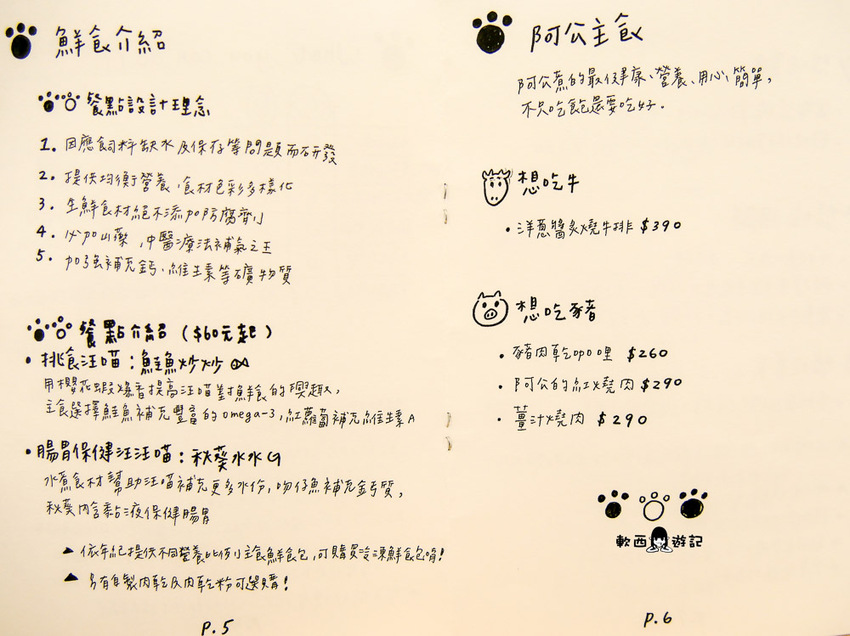 鮮食介紹
餐點設計理念
1. 因應飼料缺水及保存等問題而研發
2. 提供均衡營養、食材色彩多樣化
3. 生鮮食材絕不添加防腐劑
4. 必加山藥，中醫療法補氣之王
5. 加強補充鈣、維生素等礦物質
餐點介紹（$60元起）
• 挑食汪喵：鮭魚炒炒
用櫻花蝦爆香提高汪喵對鮮食的興趣，
主食選擇鮭魚補充豐富的omega-3，紅蘿蔔補充維生素A
• 腸胃保健汪汪喵：秋葵水水G
水煮食材幫助汪喵補充更多水份，吻仔魚補充鈣質，
秋葵內含黏液保健腸胃
▲ 依年紀提供不同營養比例主食鮮食包，可購買冷凍鮮食包唷！
▲ 另有自製肉乾及肉乾粉可選購！
P.5
阿公主食
阿公煮的最健康、營養、用心、簡單，
不只吃飽還要吃好。
想吃牛
• 洋蔥醬炙燒牛排 $390
想吃豬
• 豬肉乾咖哩 $260
• 阿公的紅燒肉 $290
• 薑汁燒肉 $290
軟西遊記
P.6